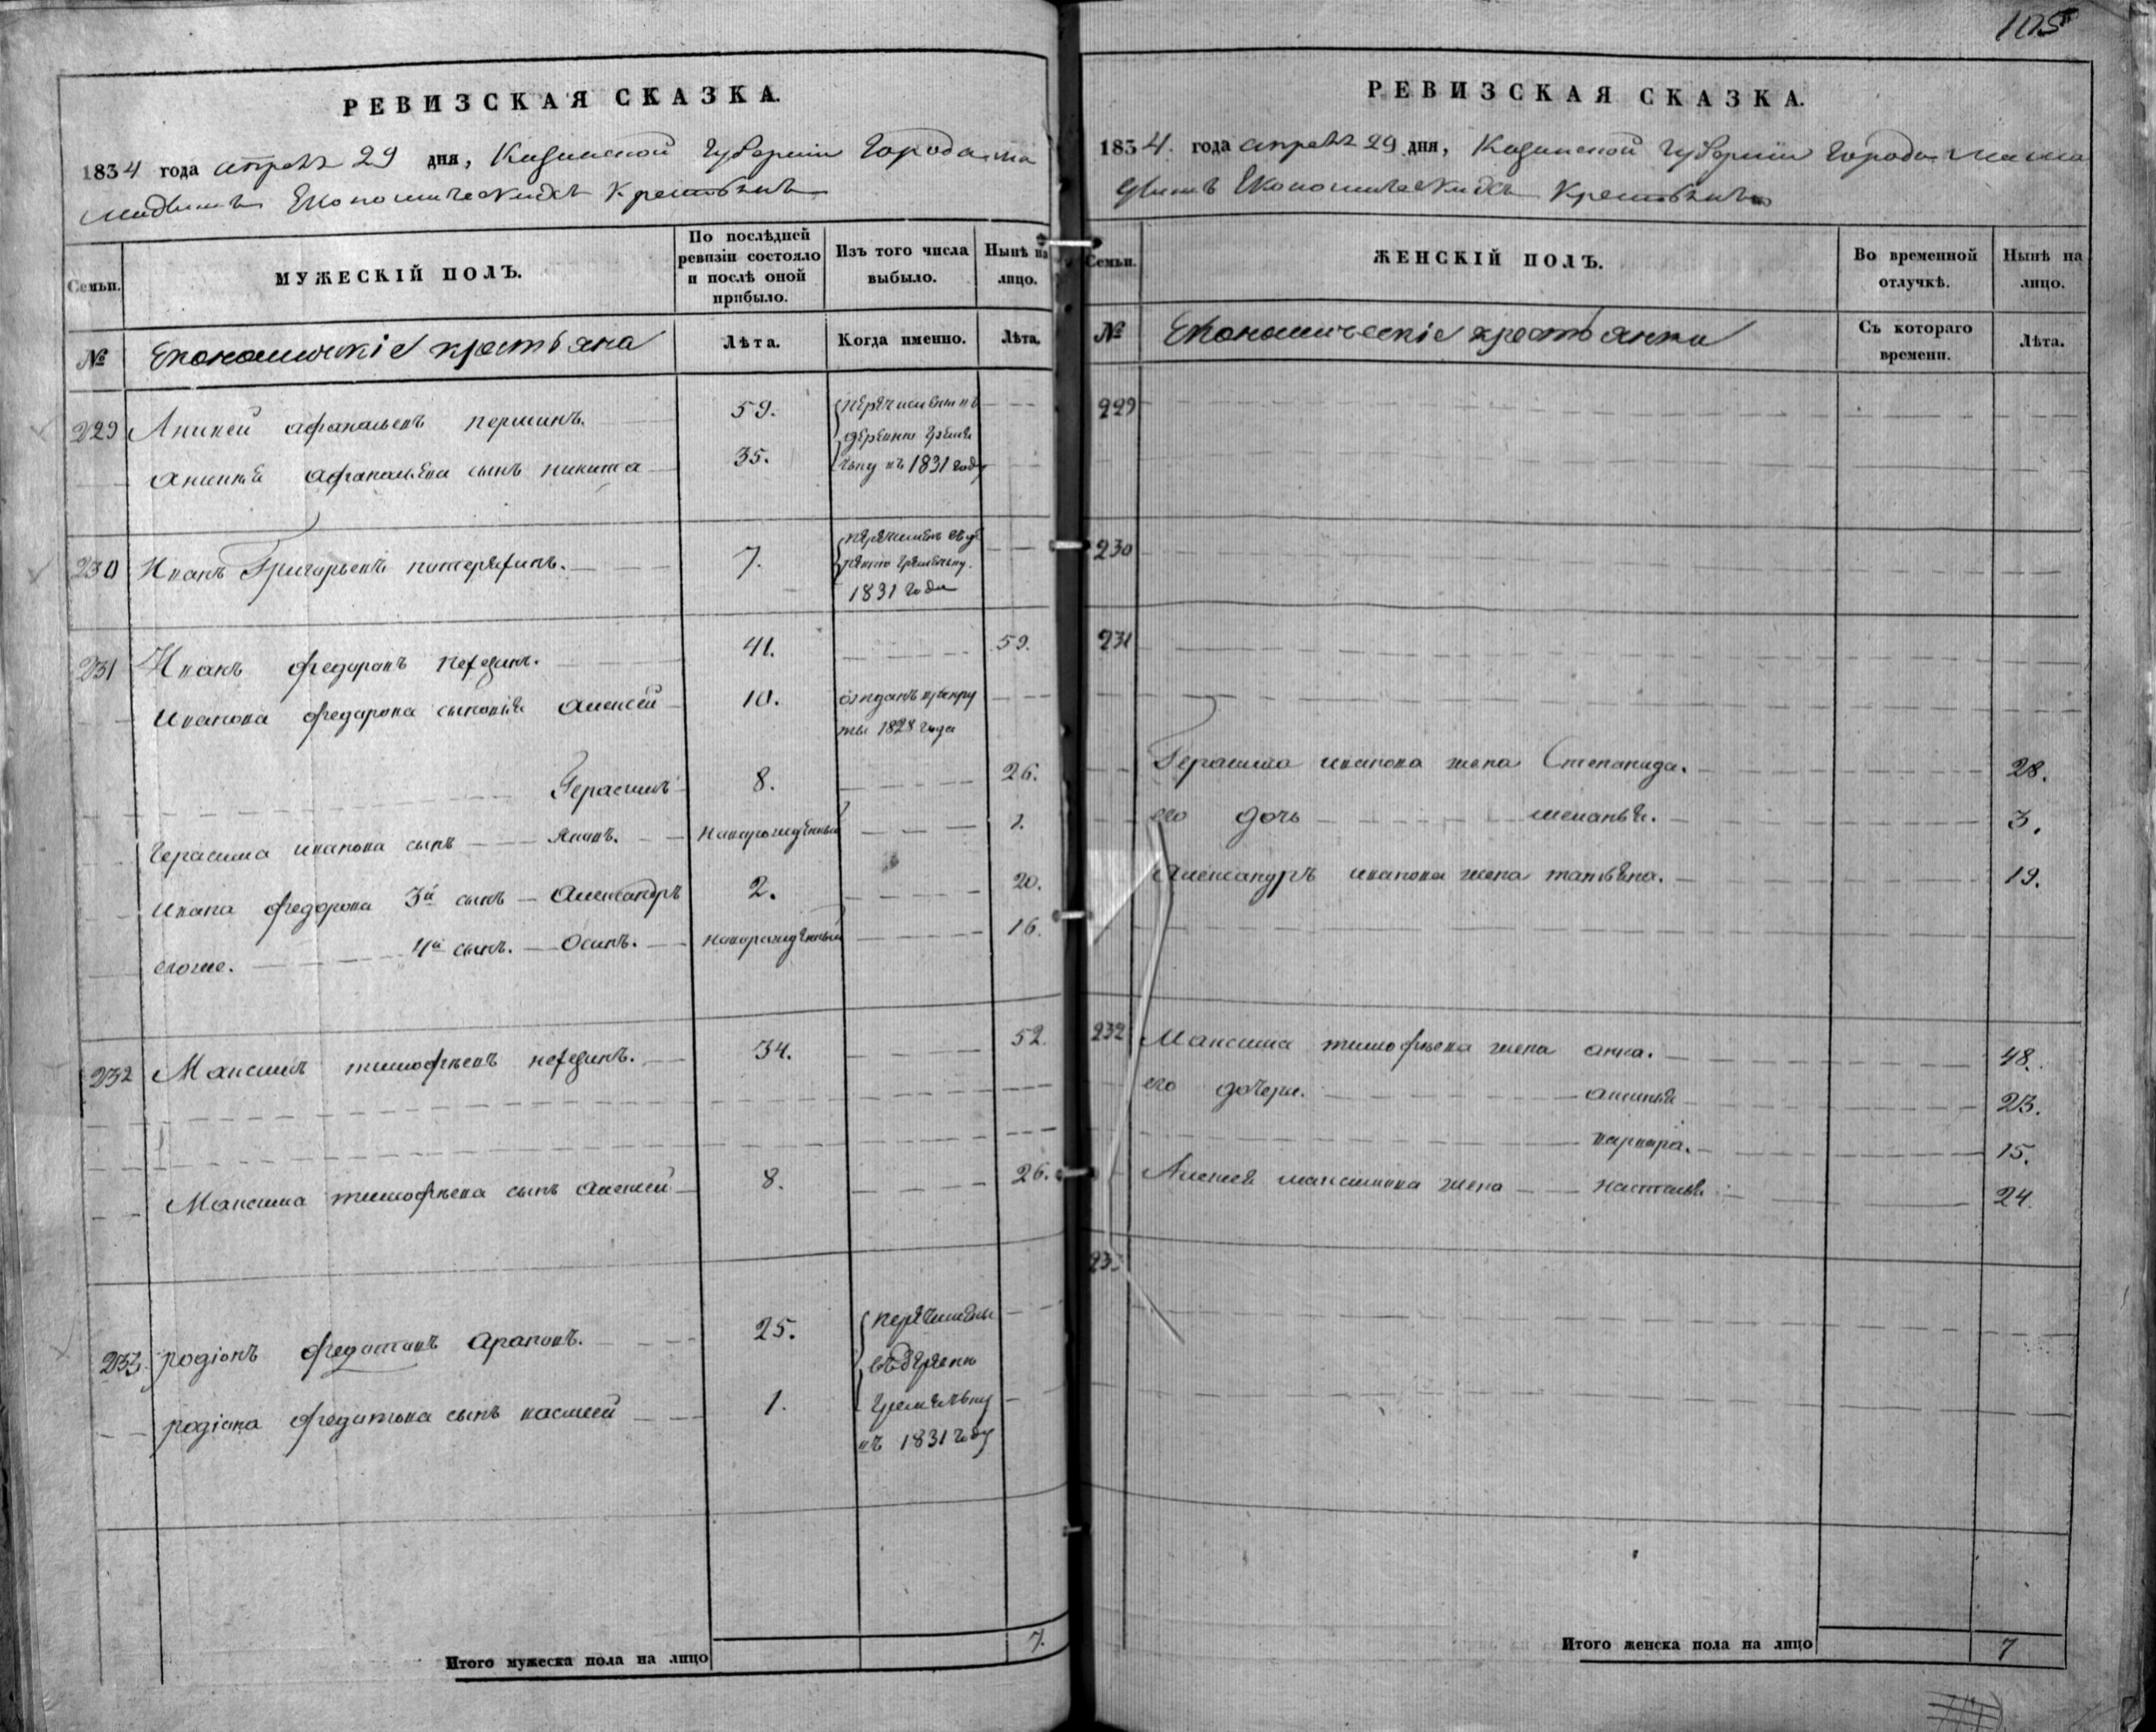 РЕВИЗСКАЯ СКАЗКА.
1834 года апреля 29 дня, Казанской Губернии Города Ма
мадыша Экономическихъ Крестьянъ
Семьи.
МУЖЕСКІЙ ПОЛЪ.
По послѣдней ревизіи состояло и послѣ оной прибыло.
Изъ того числа выбыло.
Нынѣ на лицо.
№
Економическіе крестьяна
Лѣта.
Когда именно.
Лѣта.
229 Аникей афанасьевъ першинъ. 59. перечислены въ
деревню Грѣме
аникея афанасьева сынъ никита 35. въ 1831 году
230 Иванъ Григорьевъ 7.
1831 года
231 Иванъ федоровъ 41. 59.
Ивана федорова сыновья алексей 10. отданъ врекру
ты 1828 года
Герасимъ 8. 26.
Герасима иванова сынъ новорожденный 1.
Ивана федорова 3й сынъ Александръ 2. 20.
его же. 4й сынъ. Осипъ. новорожденный 16.
232 Максимъ тимофеевъ 34. 52.
Максима тимофеева сынъ алексей 8. 26.
233 родіонъ федотовъ араповъ. 25. перечислены
въ деревню
родіона федотова сынъ 1.
въ 1831 году
Итого мужеска пола на лицо 7.
105
РЕВИЗСКАЯ СКАЗКА.
1834. года апреля 29 дня, Казанской Губерніи Города мама
дыша Економическихъ Крестьянъ
Семьи.
ЖЕНСКІЙ ПОЛЪ.
Во временной отлучкѣ.
Нынѣ на лицо.
№
Економическіе крестьянки
Съ котораго времени.
Лѣта.
229
230
231
Герасима иванова жена Степанида. 28.
его дочь маланья. 3.
Александръ иванова жена татьяна. 19.
232 Максима тимофеева жена анна. 48.
его дочери. аксинья 23.
варвара. 15.
Алексея максимова жена настасья 24.
Итого женска пола на лицо 7